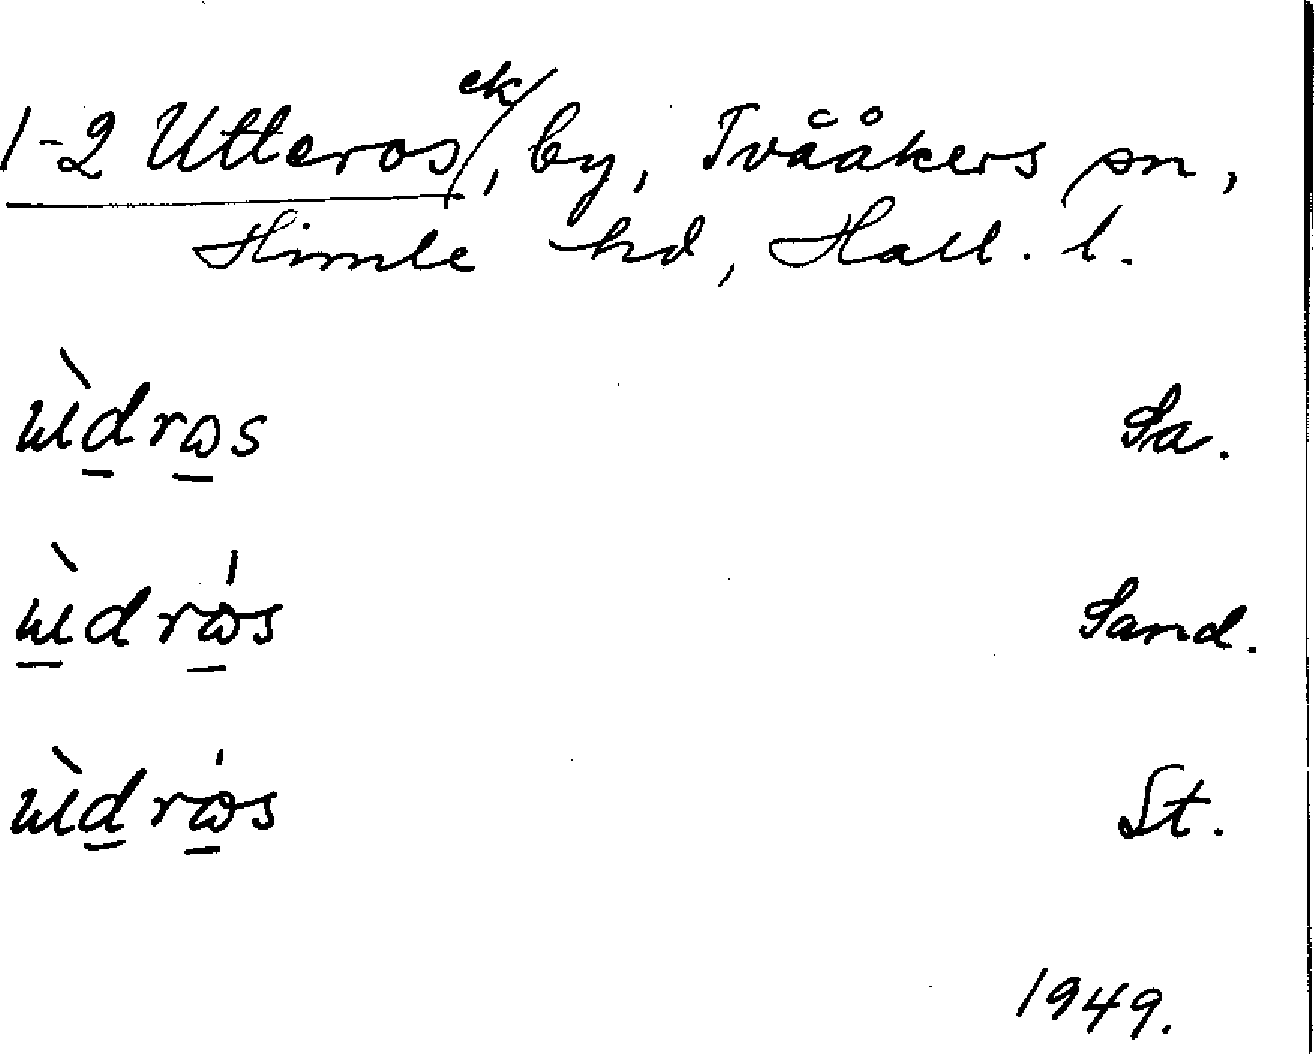 1-2 Utteros ek/, by, Tvååkers sn,
Himle hd, Hall. l.
ɯ̀d̲rɷ̲s Sa.
ɯ̲̀drɷ̲́s Sand.
ɯ̀d̲rɷ̲́s St.
1949.